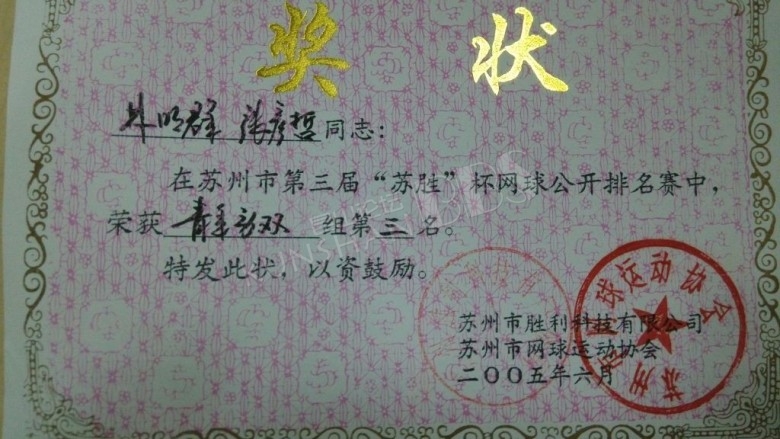 奖 状
明群 张彦哲同志:
在苏州市第三届“苏胜”杯网球公开排名赛中,
荣获 青年男双 组第三名。
特发此状,以资鼓励。
苏州市胜利科技有限公司
苏州市网球运动协会
二〇〇五年六月